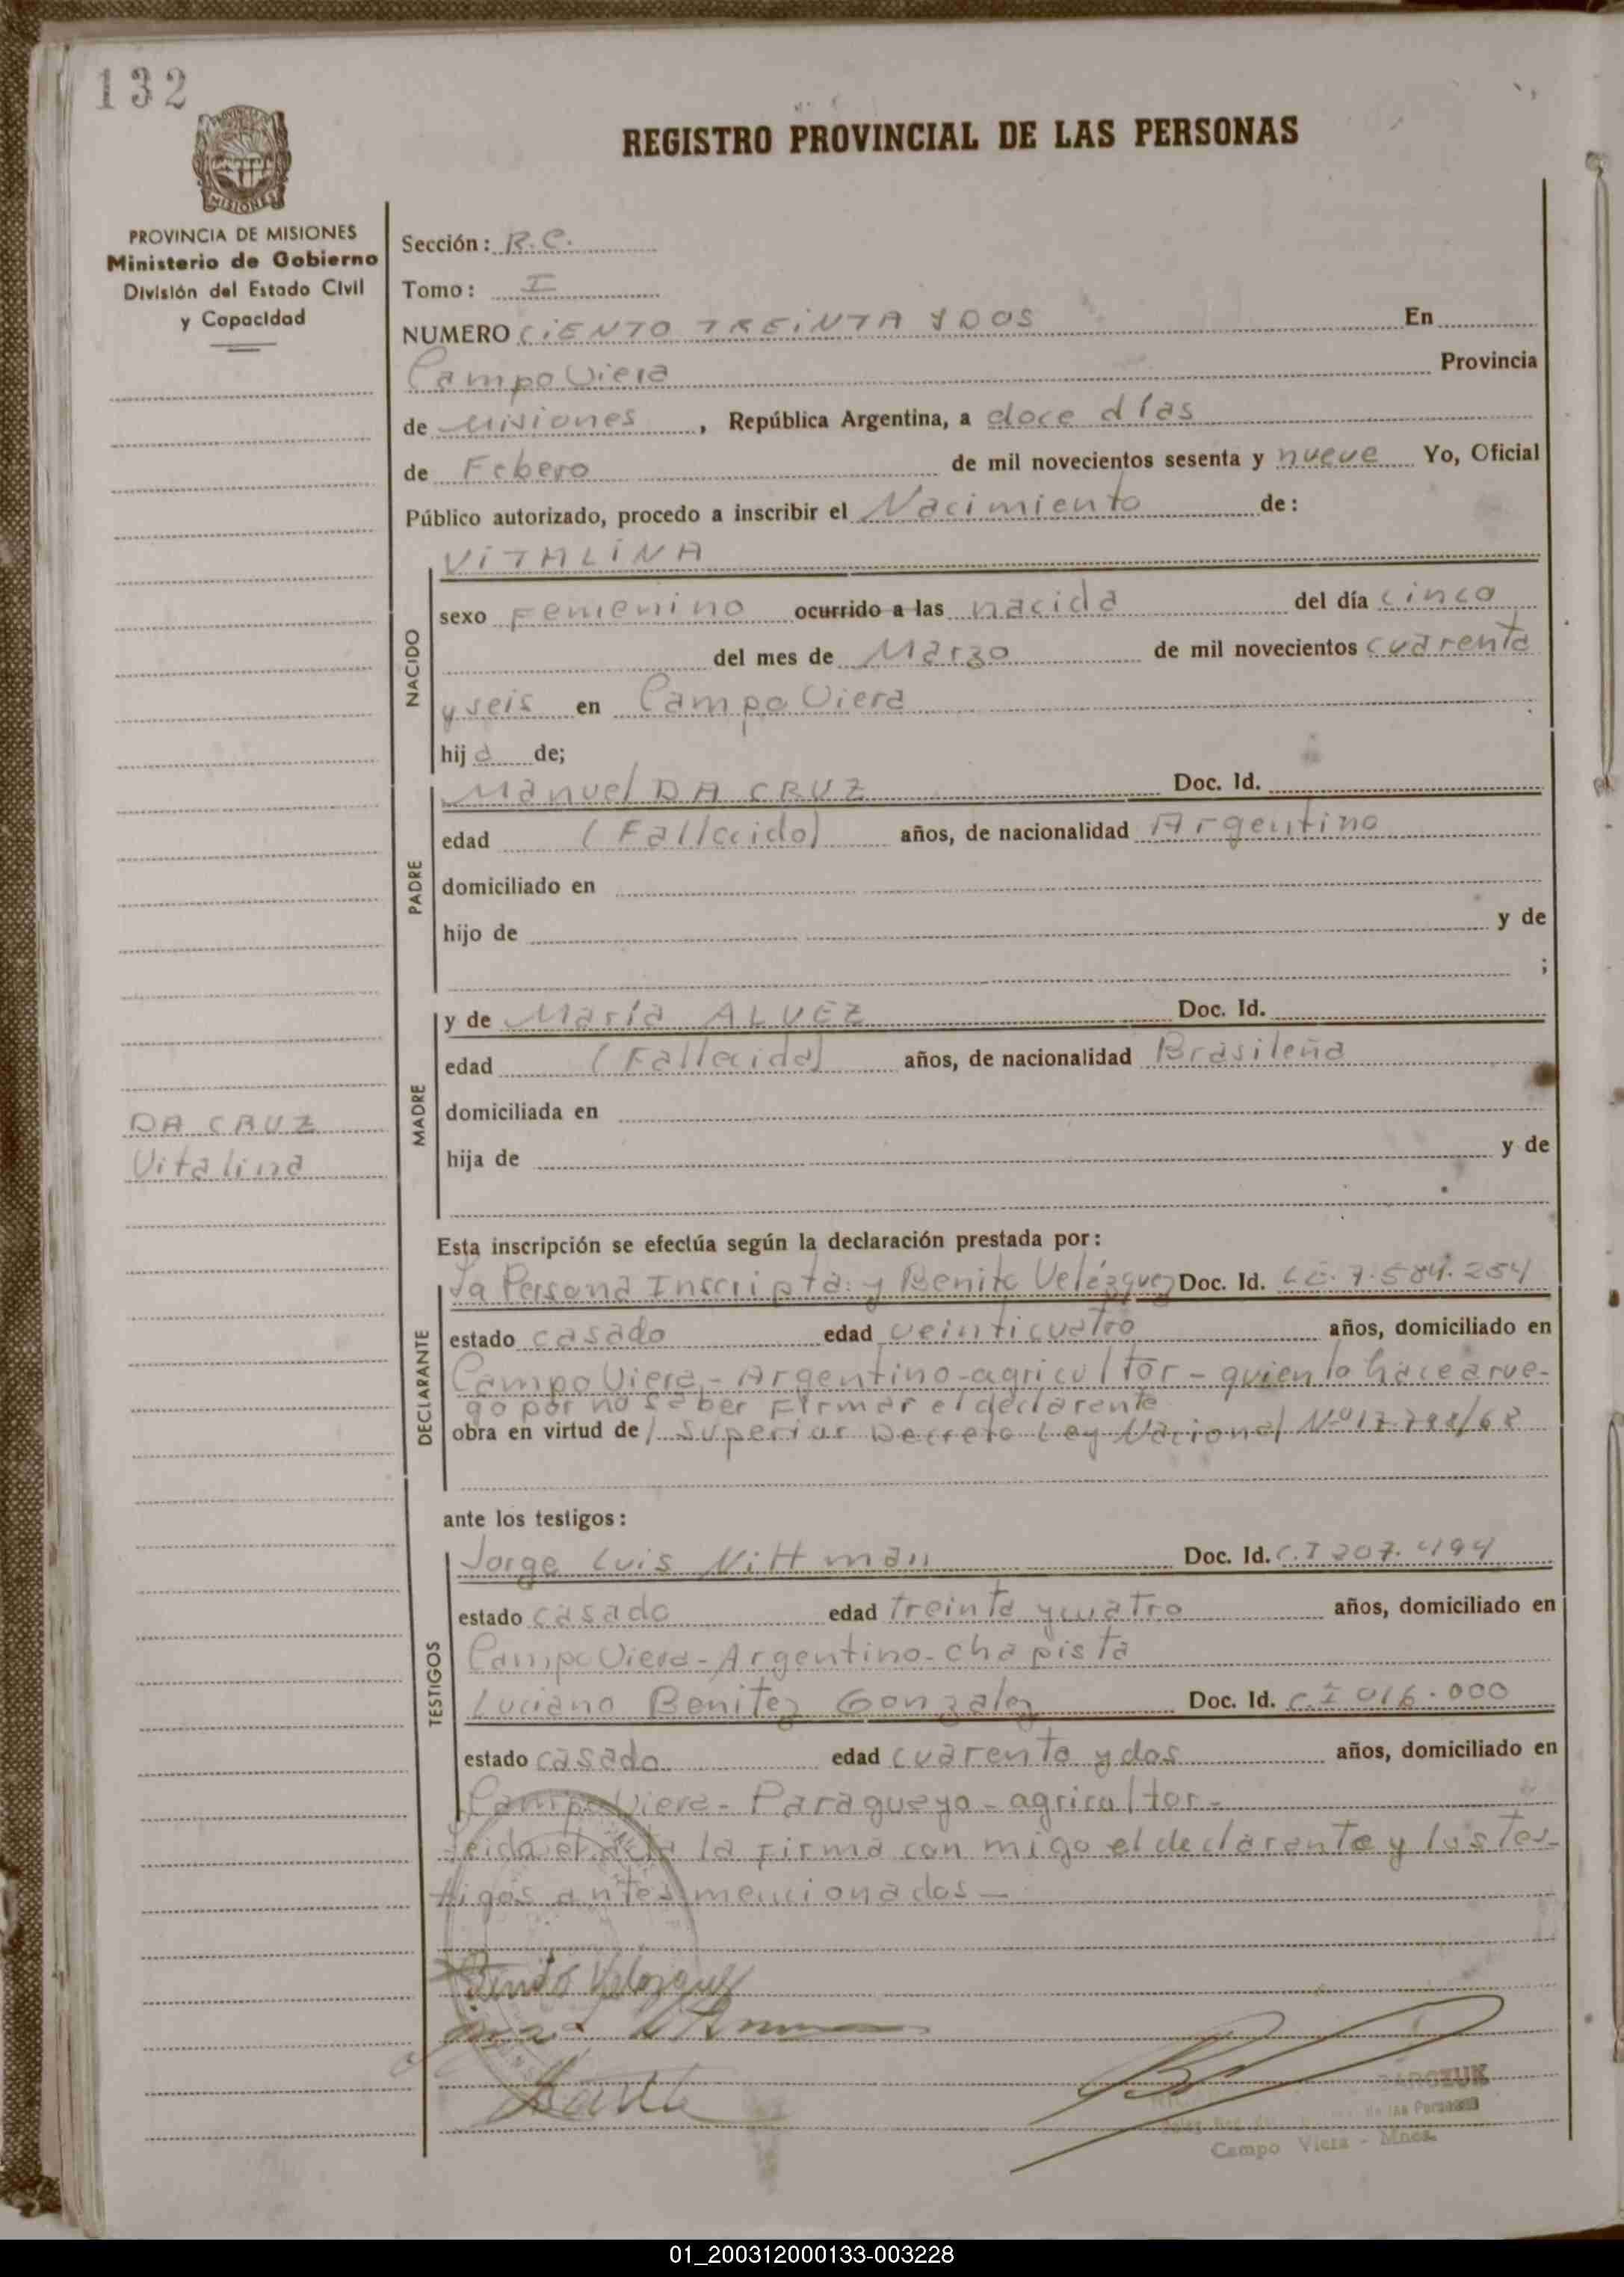 132
REGISTRO PROVINCIAL DE LAS PERSONAS
MISIONES
PROVINCIA DE MISIONES
Ministerio de Gobierno
División del Estado Civil
y Capacidad
Sección: R.C.
Tomo: I
NUMERO CIENTO TREINTA Y DOS En
Campo Viera Provincia
de Misiones, República Argentina, a doce días
de Febero de mil novecientos sesenta y nueve Yo, Oficial
Público autorizado, procedo a inscribir el Nacimiento de:
VITALINA
NACIDO
sexo Femenino ocurrido a las nacida del día cinco
del mes de Marzo de mil novecientos cuarenta
y seis en Campo Viera
hija de;
PADRE
Manuel DA CRUZ Doc. Id.
edad (Fallecido) años, de nacionalidad Argentino
domiciliado en
hijo de y de
;
MADRE
y de María ALVEZ Doc. Id.
edad (Fallecida) años, de nacionalidad Brasileña
domiciliada en
hija de y de
DA CRUZ
Vitalina
Esta inscripción se efectúa según la declaración prestada por:
DECLARANTE
la Persona Inscripta y Benito Velézquez Doc. Id. 7.584.254
estado casado edad veinticuatro años, domiciliado en
Campo Viera - Argentino - agricultor - quien lo hace a rue-
go por no saber Firmar el declarente
obra en virtud del Superior Decreto Ley Nacional Nº 17.
ante los testigos:
TESTIGOS
Jorge Luis Nittman Doc. Id. C.I 207.494
estado casado edad treinta y cuatro años, domiciliado en
Campo Viera - Argentino - chapista
Luciano Benitez Gonzalez Doc. Id. C.I 016.000
estado casado edad cuarenta y dos años, domiciliado en
Campo Viera - Paragueyo - agricultor -
leida el acta la Firma con migo el declarante y los tes-
tigos antes mencionados -
Benito Velazquez
de las Personas
Campo Viera - Mnes.
01_200312000133-003228